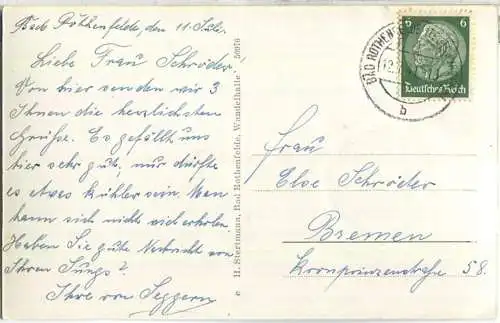 Bad Rothenfelde, den 11. Juli
Liebe Frau Schröder
Von hier senden wir 3
Ihnen die herzlichsten
Grüße. Es gefällt uns
hier sehr gut, nur dürfte
es etwas kühler sein. Man
kann sich nicht viel erholen.
Haben Sie gute Nachricht von
Ihrem Jungs?
Ihre von Seggern
H. Stertmann, Bad Rothenfelde, Wandelhalle 50976
BAD ROTHENFELDE
b
6 6
Deutsches Reich
Frau
Else Schröder
Bremen
Kornprinzenstraße 58.